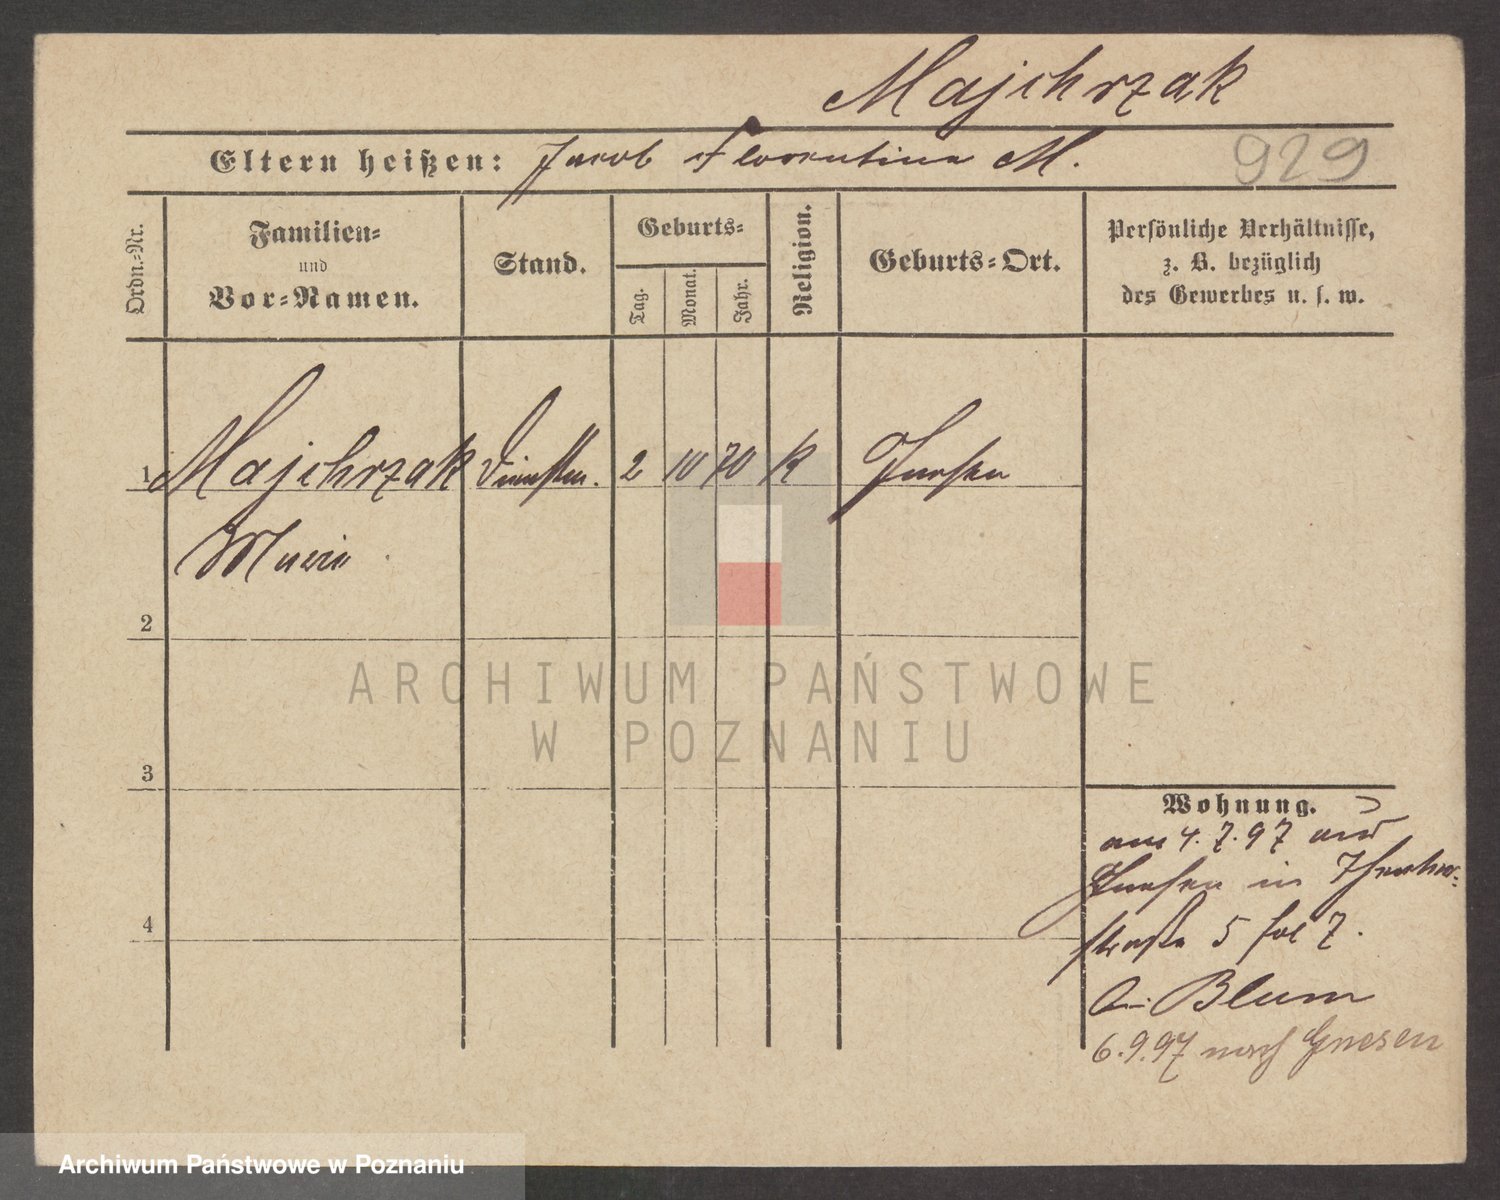 Majchrzak
Eltern heißen: Jacob + Florentina M. 929
Ordn.-Nr.
Familien-
und
Vor-Namen.
Stand.
Geburts-
Tag.
Monat.
Jahr.
Religion.
Geburts-Ort.
Persönliche Verhältnisse,
z. B. bezüglich
des Gewerbes u. s. w.
1 Majchrzak 2 10 70 K Gnesen
Marie
2
3
4
Wohnung.
am 4.7.97 aus
Gnesen in
straße 5 bei
Blum
6.9.97 nach Gnesen
ARCHIWUM PAŃSTWOWE
W POZNANIU
Archiwum Państwowe w Poznaniu